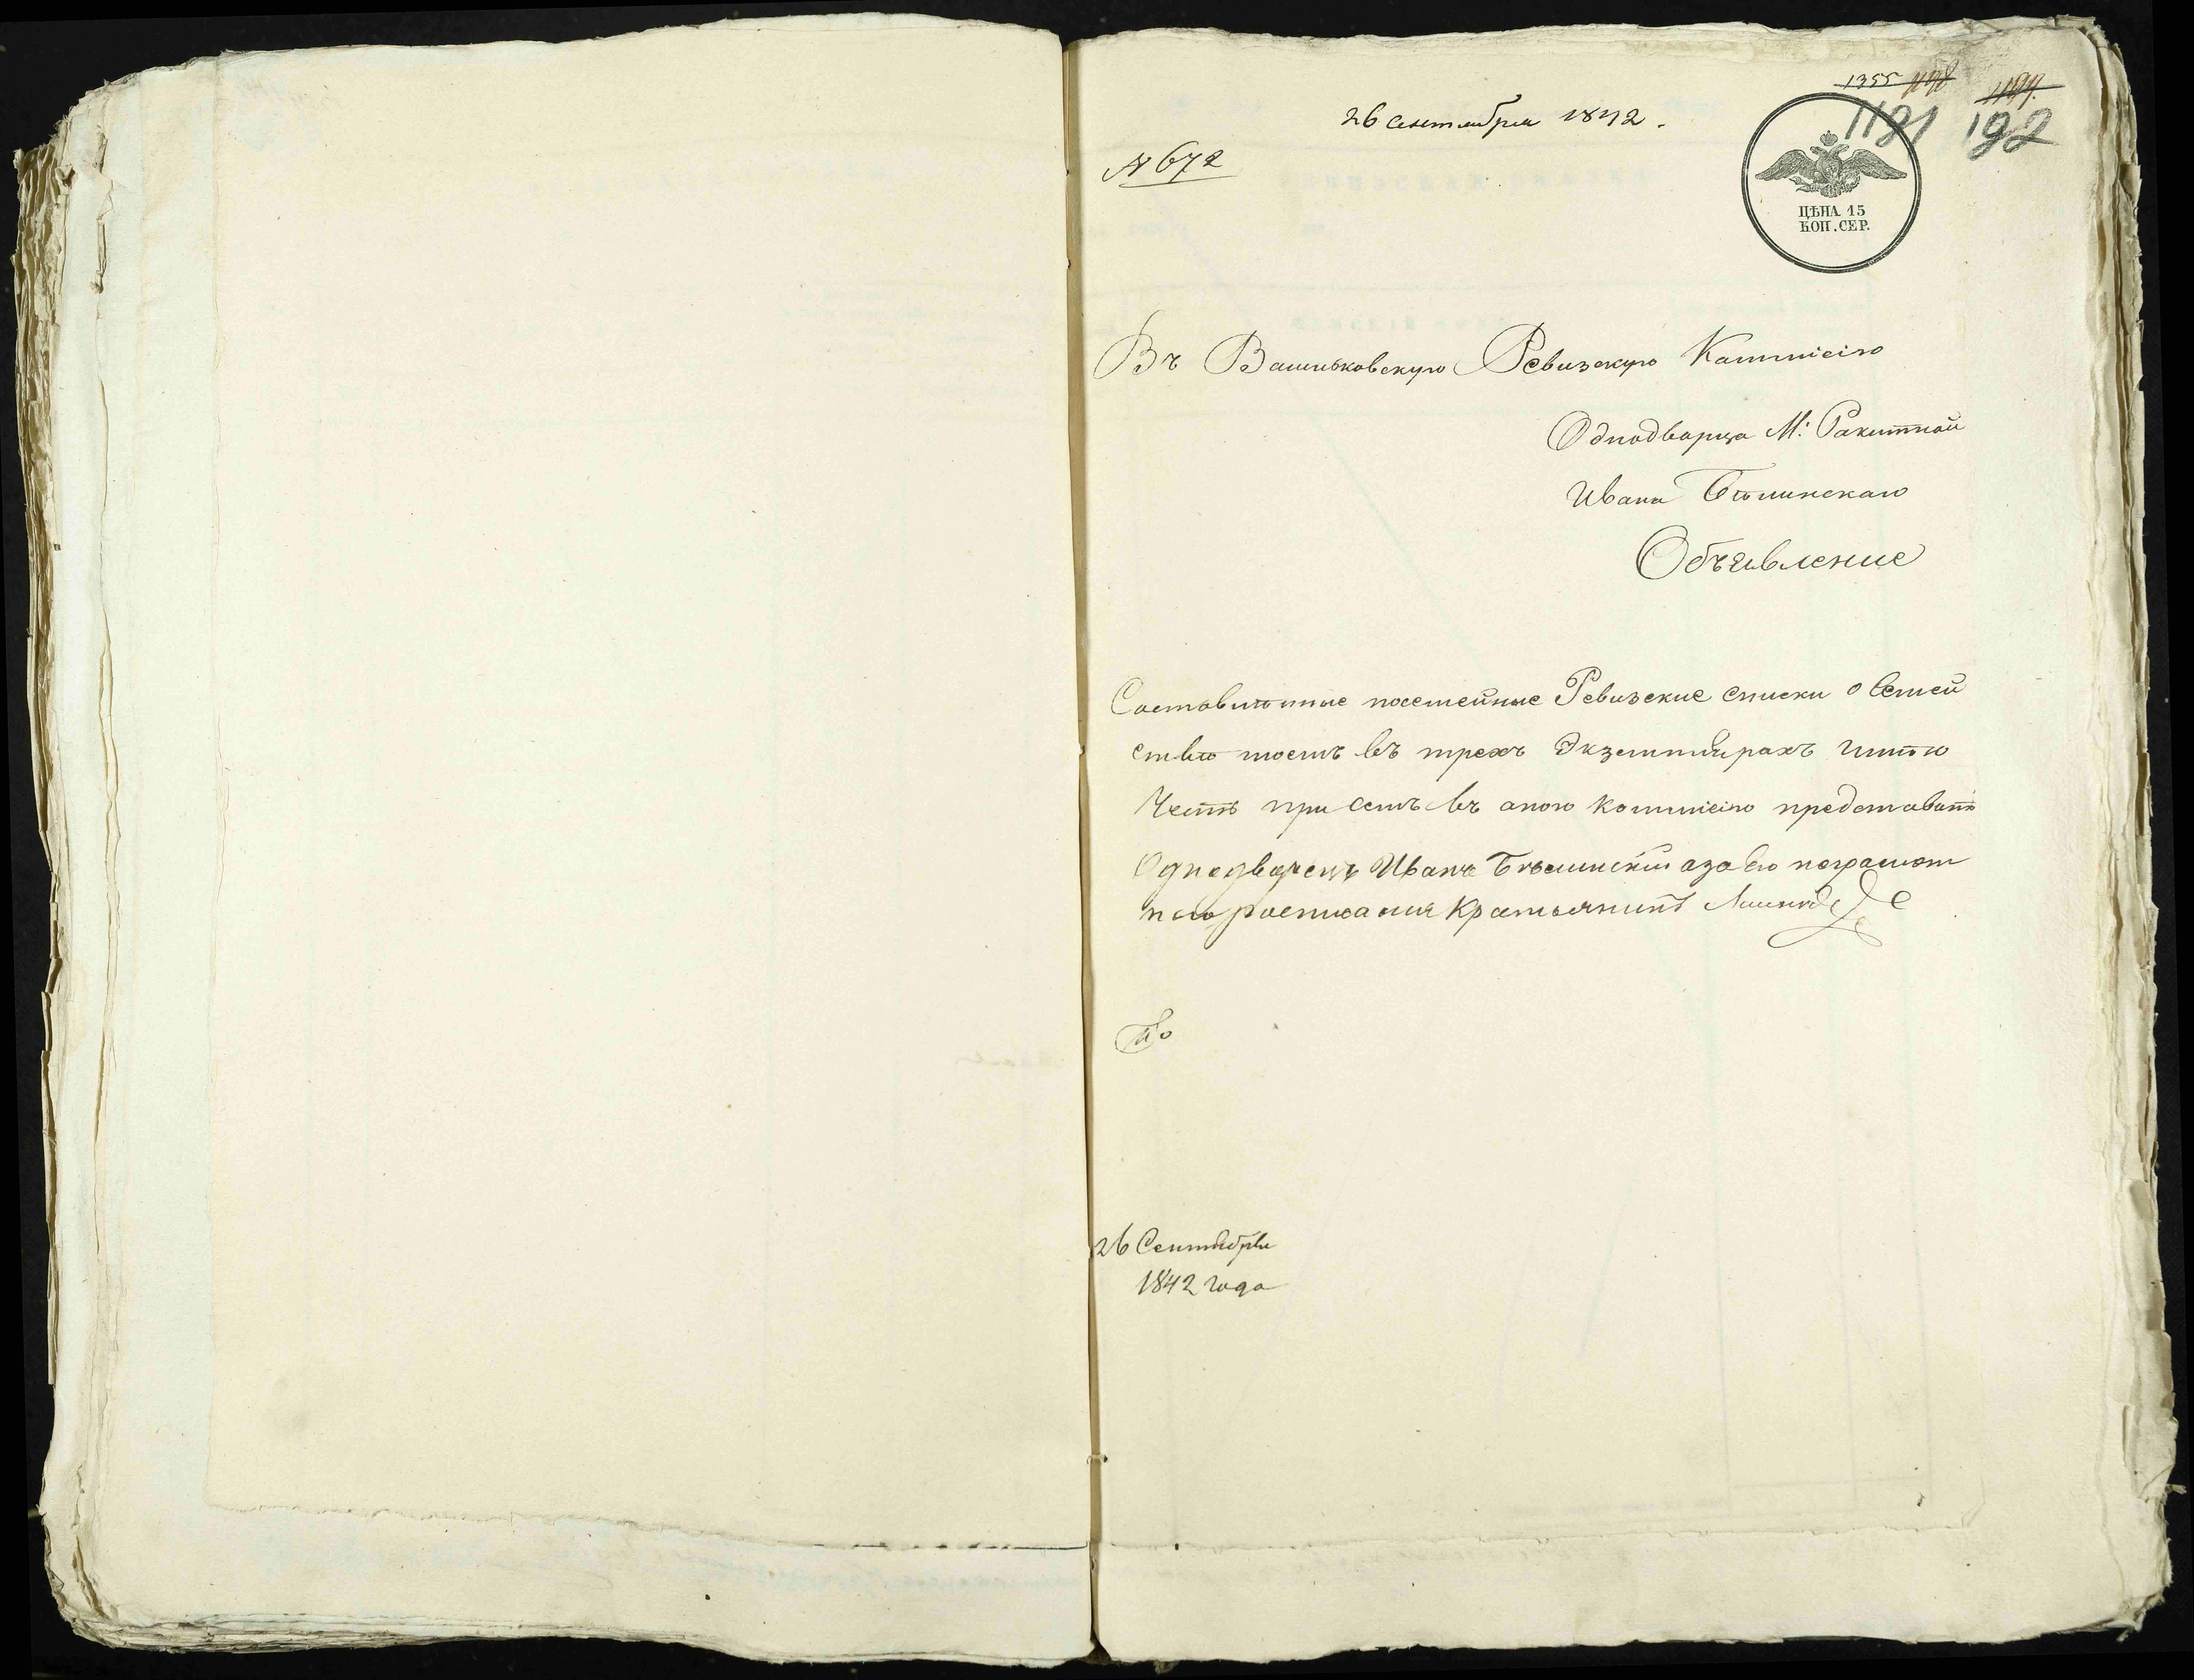 1355 1198 1184
1191 192
26 Сентября 1842.
№ 672
ЦѢНА 15
КОП. СЕР.
Въ Васильковскую Ревизскую Коммисію
Однодворца М: Ракитной
Ивана Бѣлинскаго
Объявленіе
Составленные посемейные Ревизские списки о семей
ствѣ моемъ въ трехъ Экземплярахъ имѣю
Честь при семъ въ оною коммисію представить
Однодворецъ Иванъ Бѣлинский азаего неграмот
наго росписался
26 Сентября
1842 года